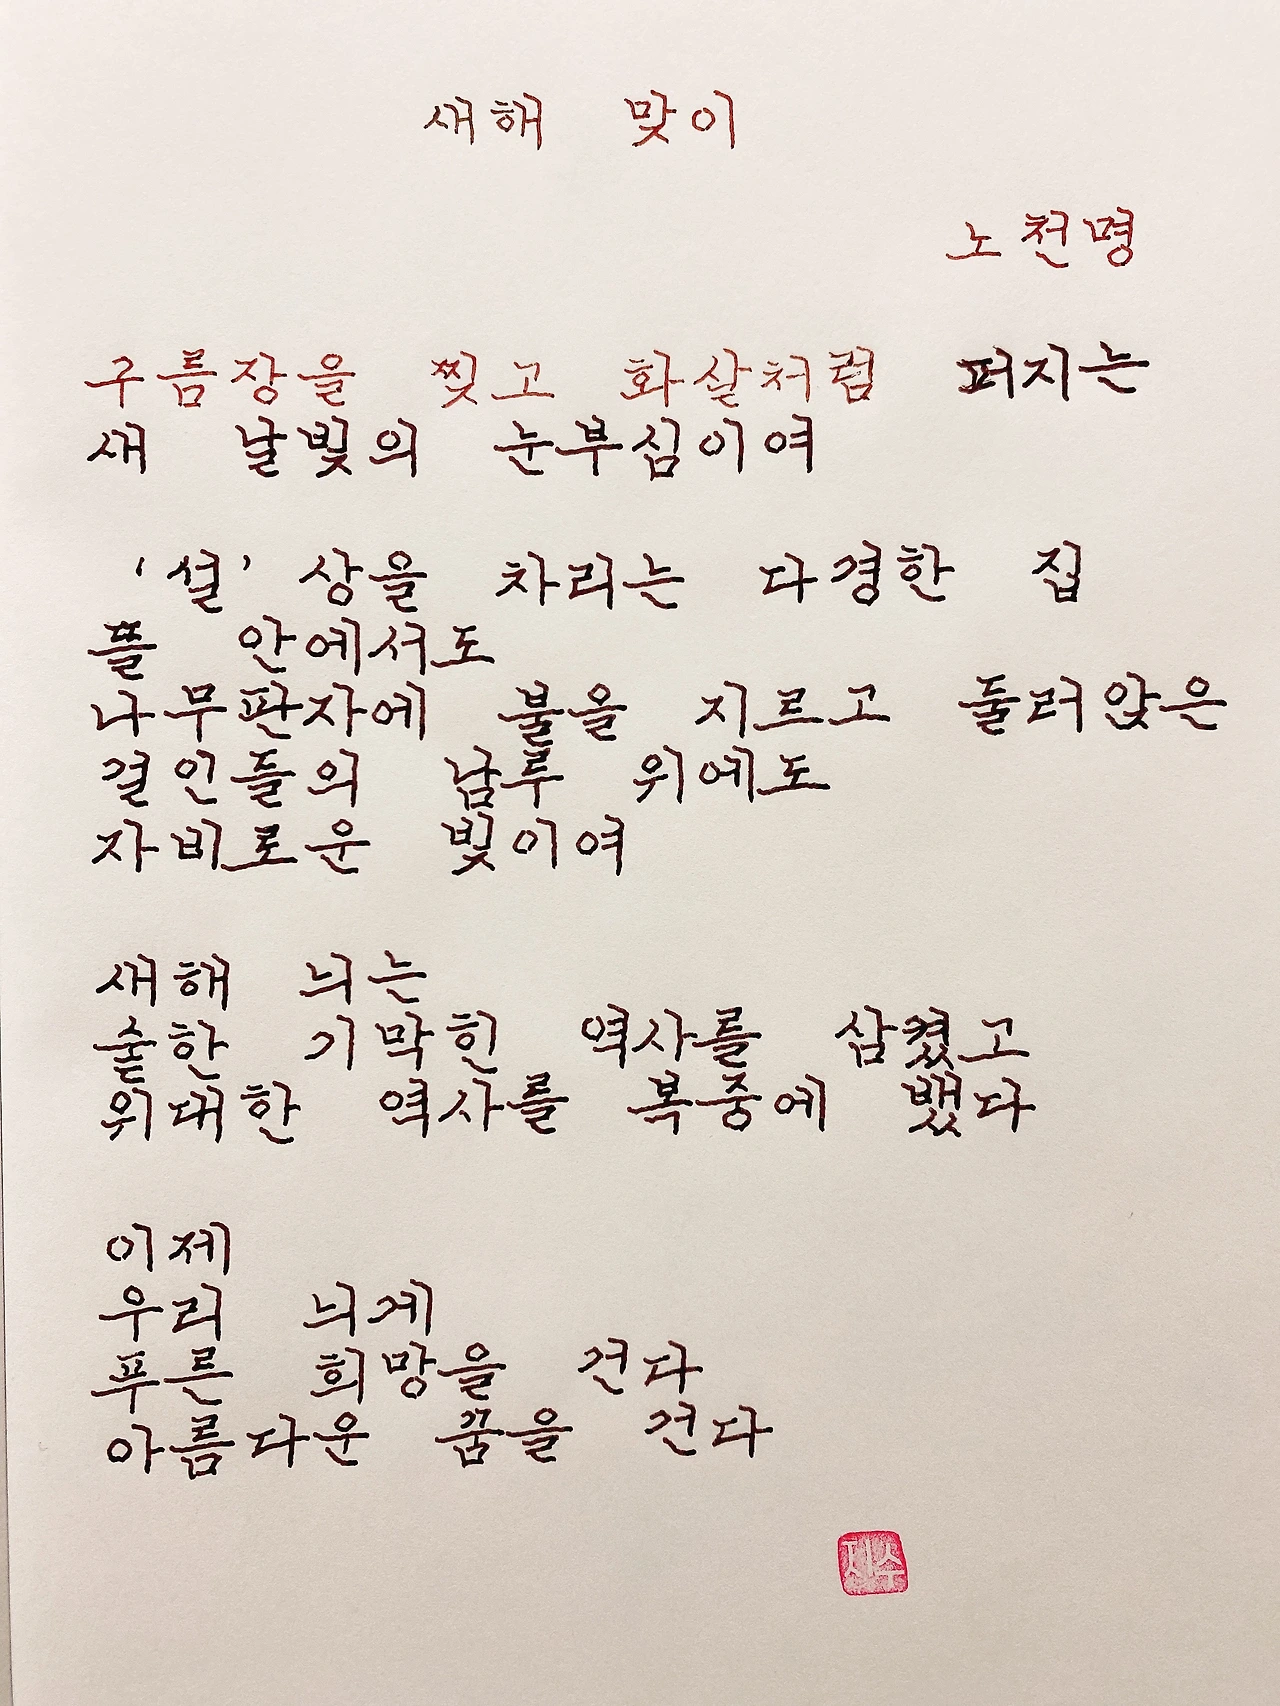 새해 맞이
노천명
구름장을 찢고 화살처럼 퍼지는
새 날빛의 눈부심이여
‘설’ 상을 차리는 다경한 집
뜰 안에서도
나무판자에 불을 지르고 둘러앉은
걸인들의 남루 위에도
자비로운 빛이여
새해 늬는
숱한 기막힌 역사를 삼켰고
위대한 역사를 복중에 뱄다
이제
우리 늬게
푸른 희망을 건다
아름다운 꿈을 건다